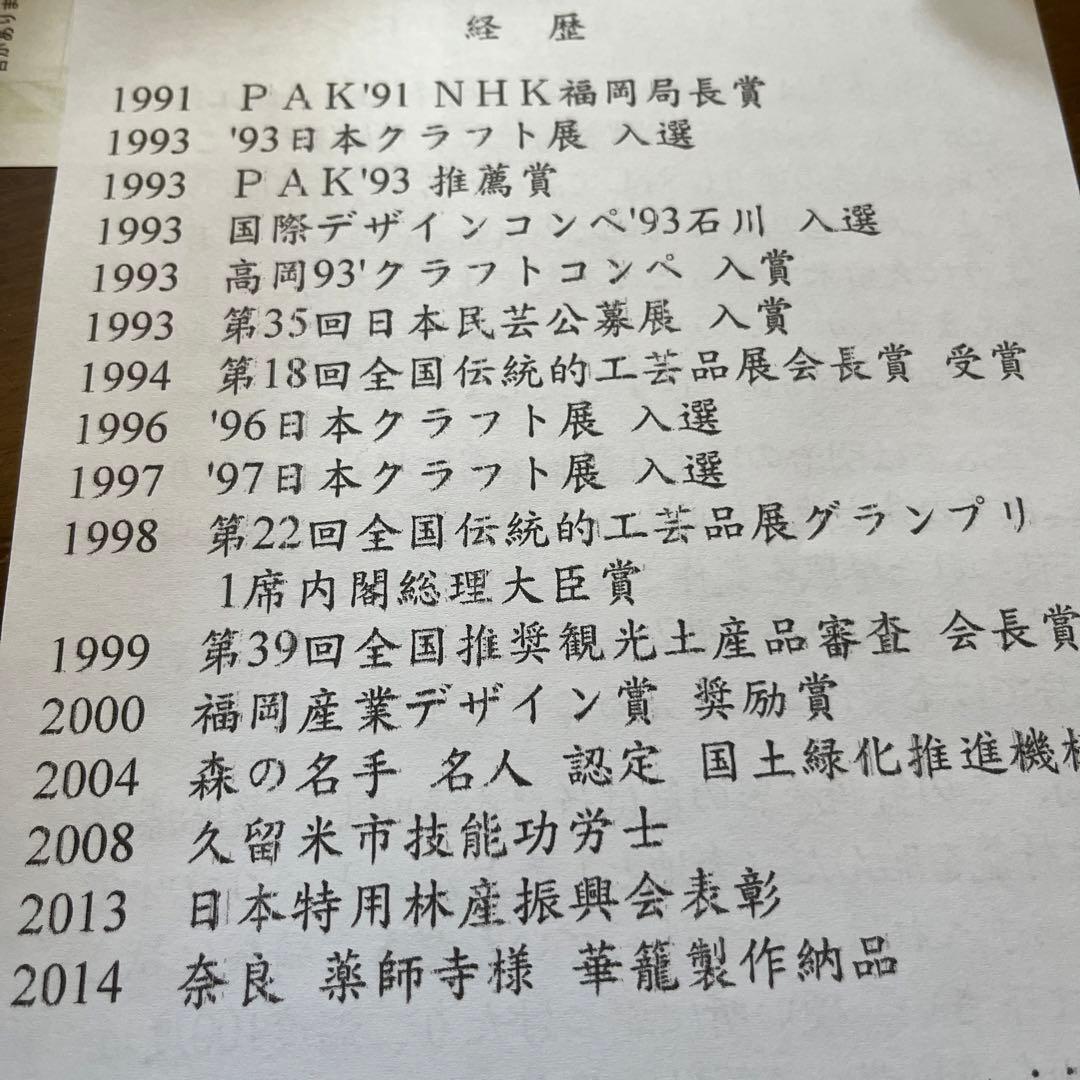 経 歴
1991 ＰＡＫ'91 ＮＨＫ福岡局長賞
1993 '93日本クラフト展 入選
1993 ＰＡＫ'93 推薦賞
1993 国際デザインコンペ'93石川 入選
1993 高岡93'クラフトコンペ 入賞
1993 第35回日本民芸公募展 入賞
1994 第18回全国伝統的工芸品展会長賞 受賞
1996 '96日本クラフト展 入選
1997 '97日本クラフト展 入選
1998 第22回全国伝統的工芸品展グランプリ
1席内閣総理大臣賞
1999 第39回全国推奨観光土産品審査 会長賞
2000 福岡産業デザイン賞 奨励賞
2004 森の名手 名人 認定 国土緑化推進機
2008 久留米市技能功労士
2013 日本特用林産振興会表彰
2014 奈良 薬師寺様 華籠製作納品